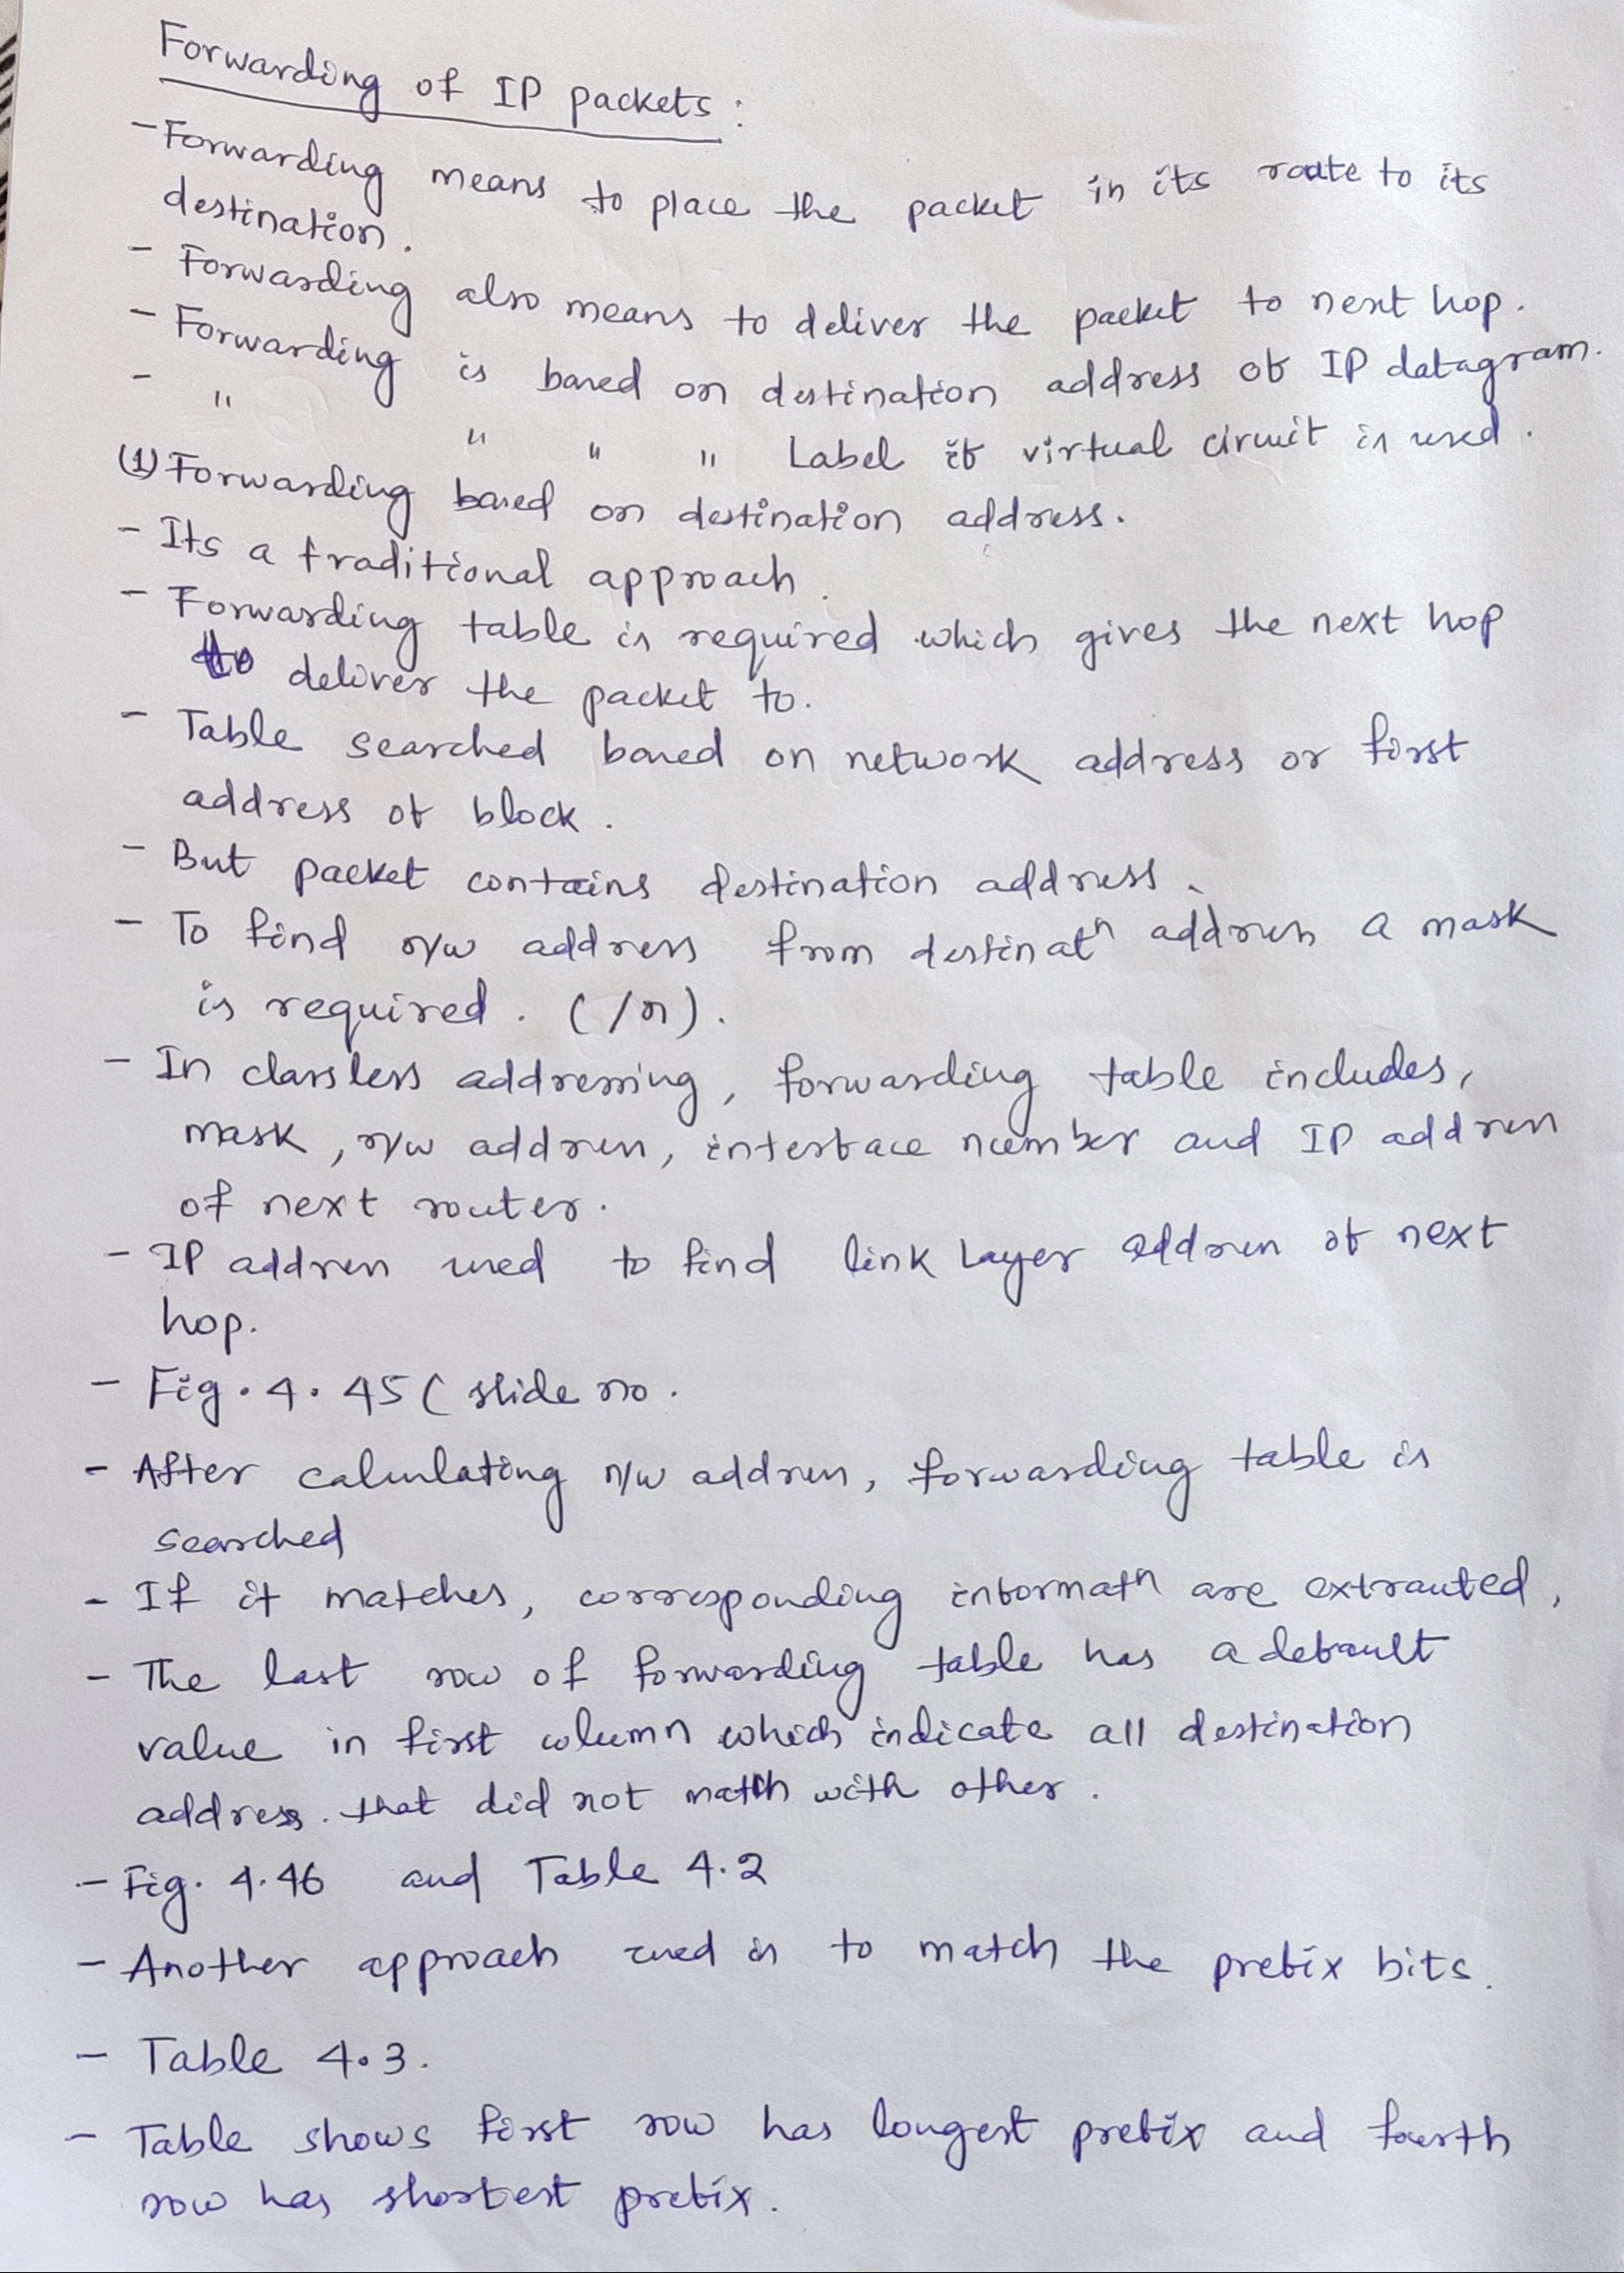 Forwarding of IP packets :
- Forwarding means to place the packet in its route to its
destination.
- Forwarding also means to deliver the packet to next hop.
- Forwarding is based on destination address of IP datagram.
- " " " " Label if virtual circuit is used.
(1) Forwarding based on destination address.
- Its a traditional approach.
- Forwarding table is required which gives the next hop
to deliver the packet to.
- Table searched based on network address or first
address of block.
- But packet contains destination address.
- To find n/w address from destinatn address a mask
is required. (/n).
- In classless addressing, forwarding table includes,
mask, n/w address, interface number and IP address
of next router.
- IP address used to find link Layer address of next
hop.
- Fig. 4.45 ( slide no.
- After calculating n/w address, forwarding table is
searched
- If it matches, corresponding informatn are extracted,
- The last row of forwarding table has a default
value in first column which indicate all destination
address. that did not match with other.
- Fig. 4.46 and Table 4.2
- Another approach used is to match the prefix bits.
- Table 4.3.
- Table shows first row has longest prefix and fourth
row has shortest prefix.